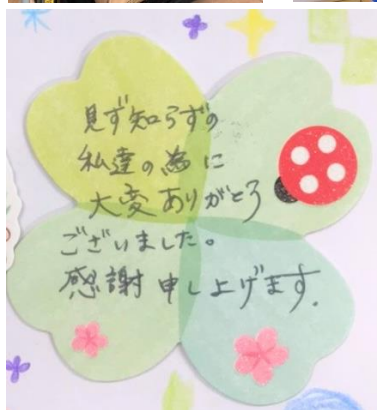 見ず知らずの
私達の為に
大変ありがとう
ございました。
感謝申し上げます.